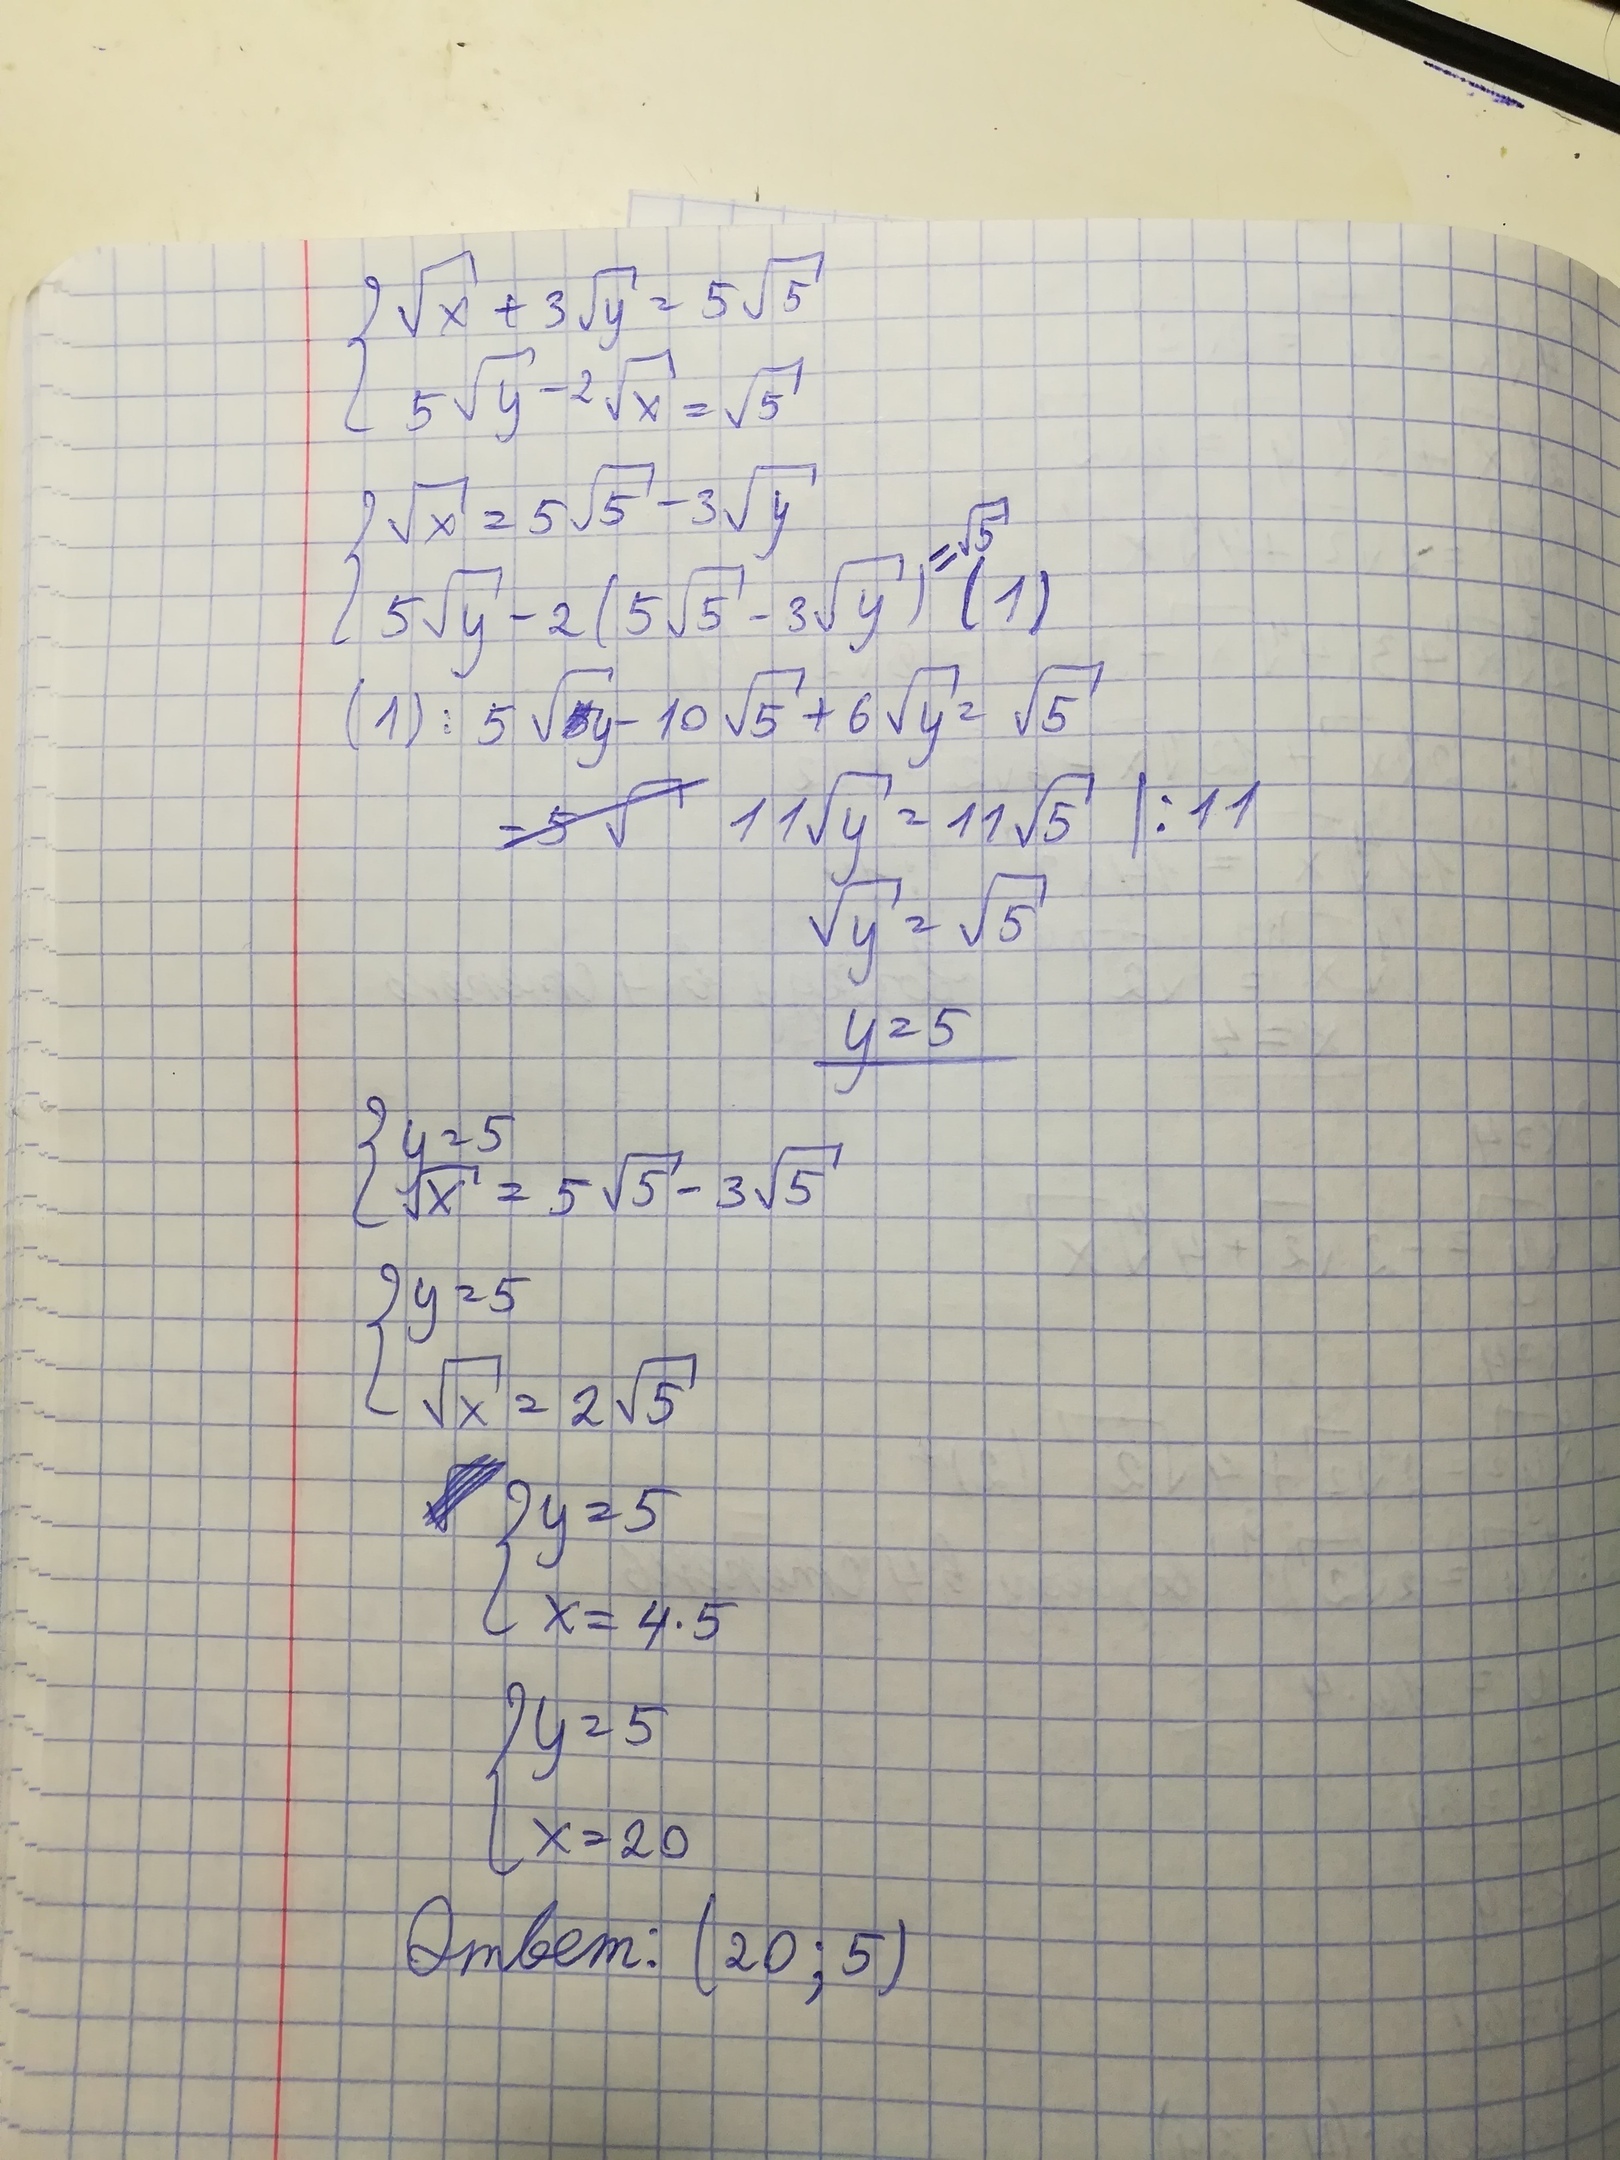 { √x + 3√y = 5√5
5√y - 2√x = √5
{ √x = 5√5 - 3√y
5√y - 2(5√5 - 3√y) = √5 (1)
(1): 5√y - 10√5 + 6√y = √5
11√y = 11√5 |:11
√y = √5
y = 5
{ y = 5
√x = 5√5 - 3√5
{ y = 5
√x = 2√5
{ y = 5
x = 4·5
{ y = 5
x = 20
Ответ: (20; 5)